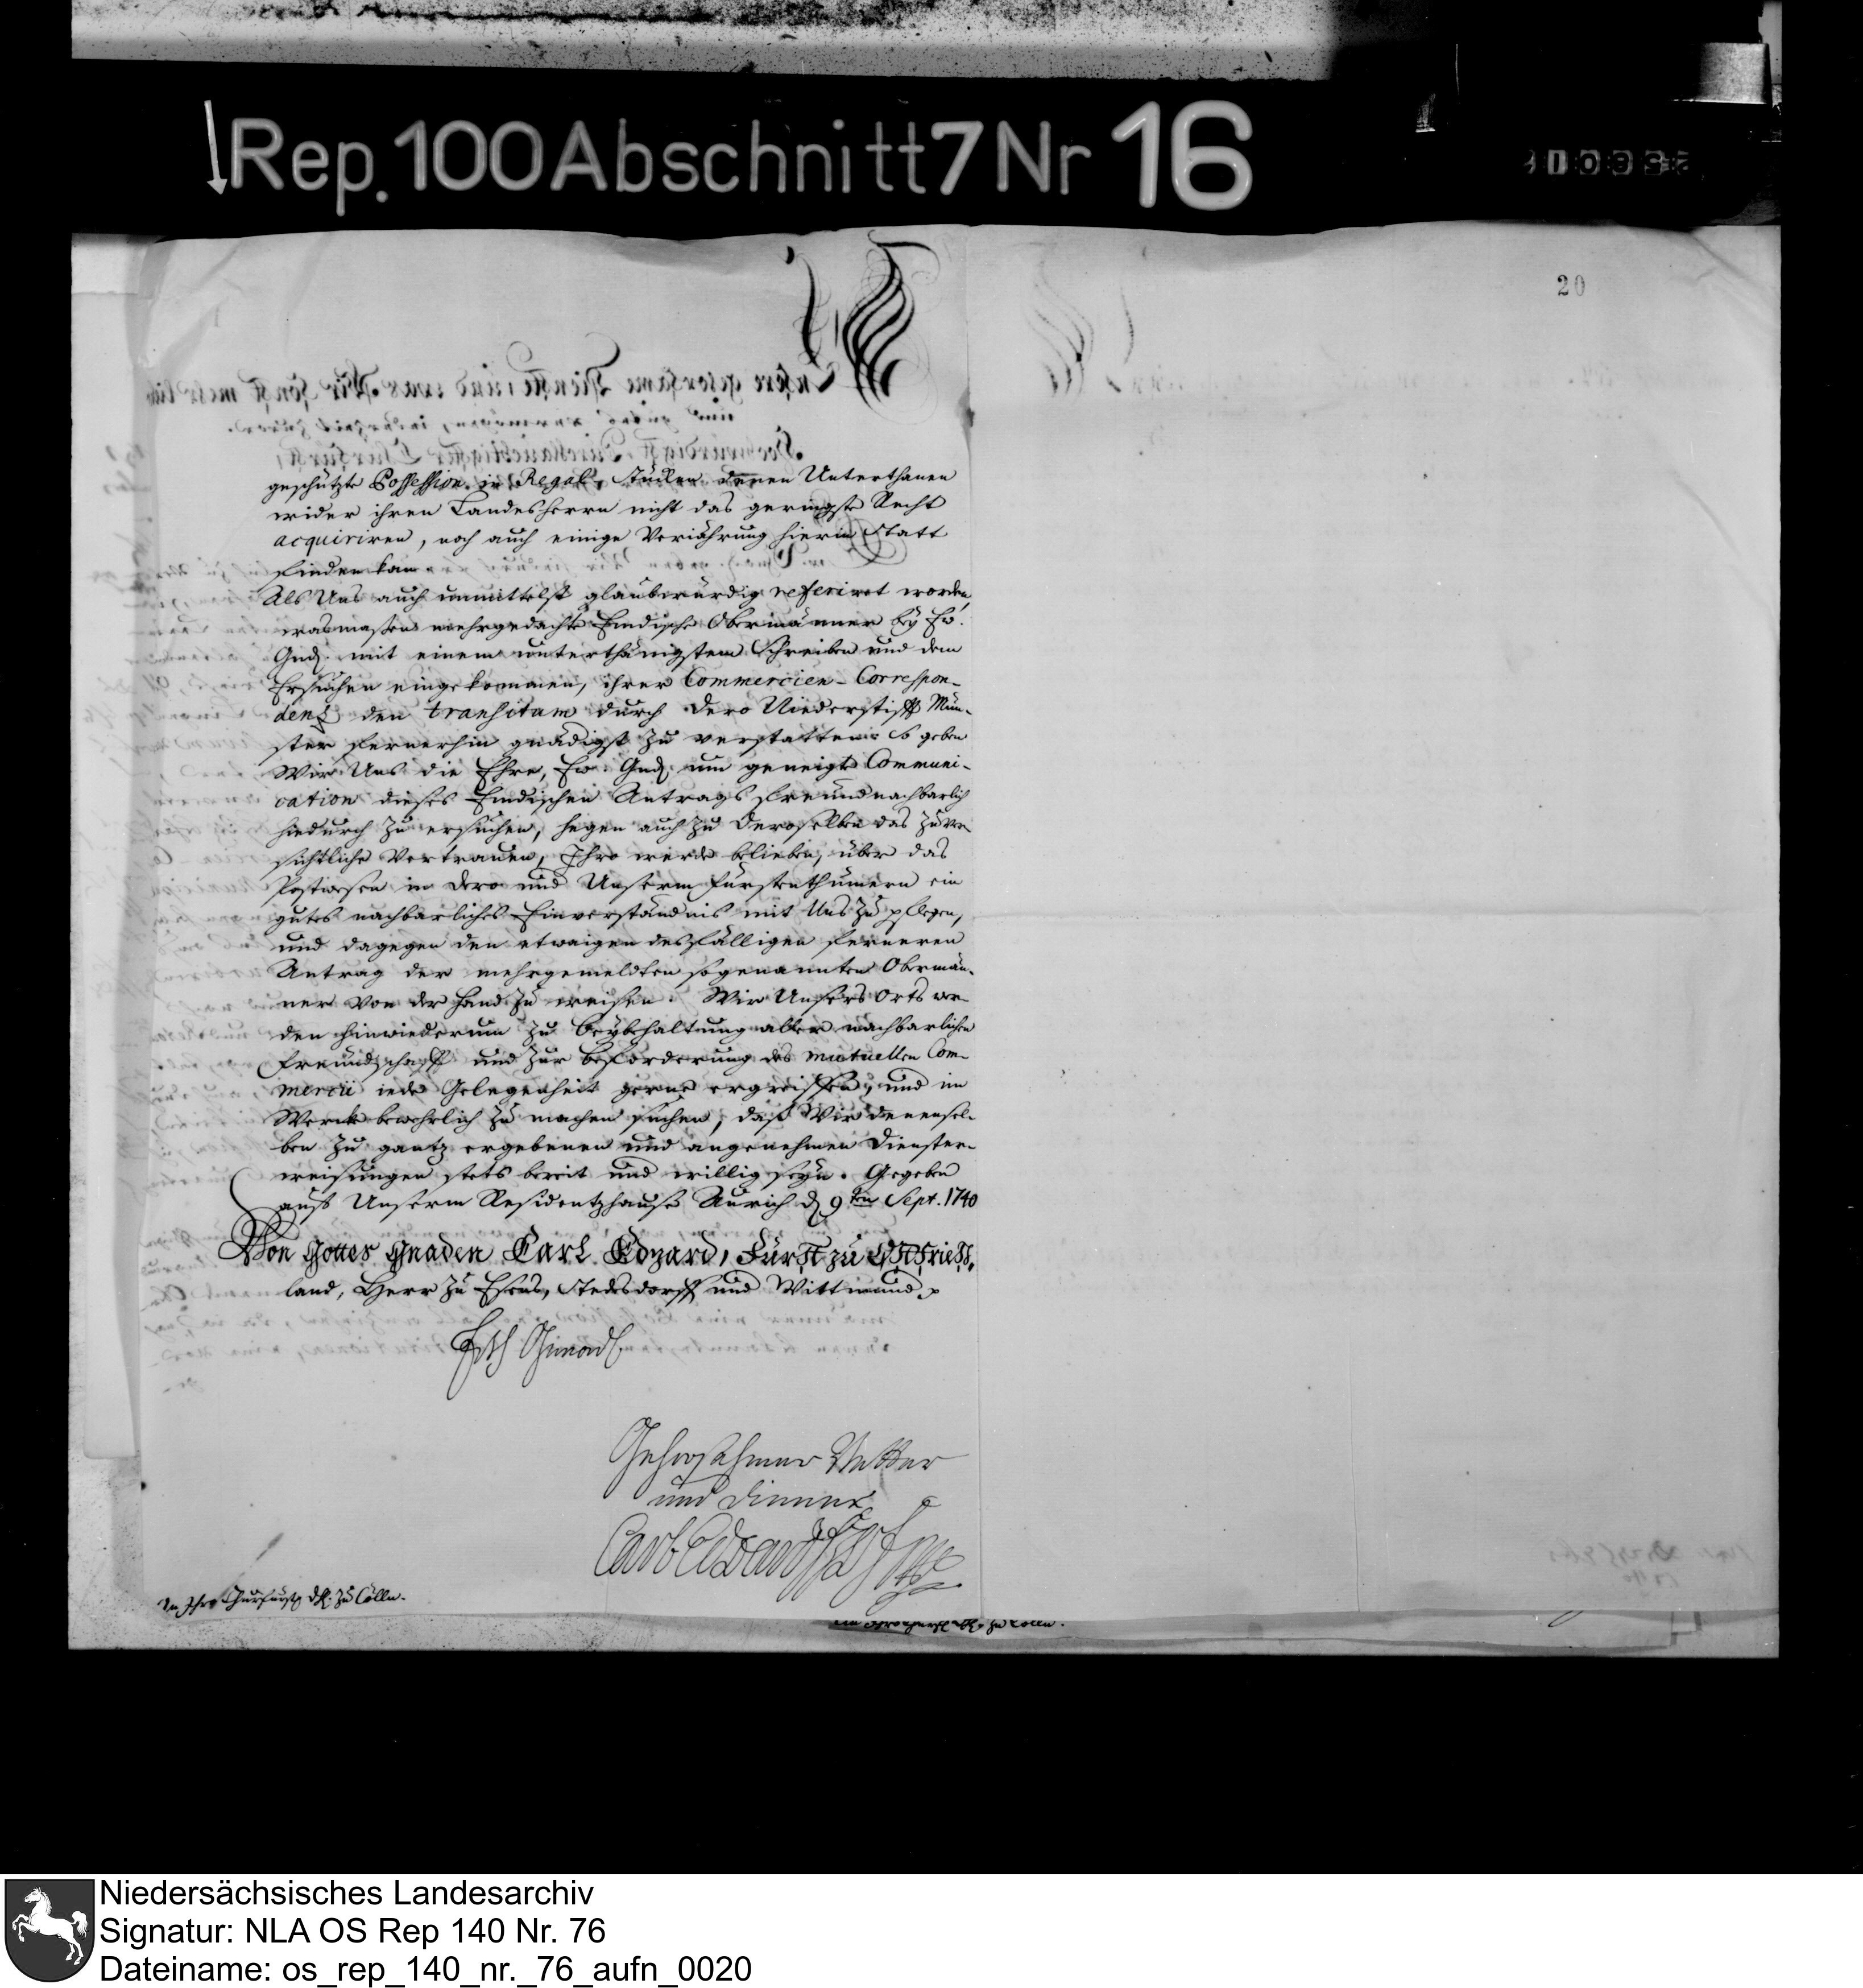 Rep. 100 Abschnitt 7 Nr 16
20
geschützte Possession in Regal-Stücken denen Unterthanen
wider ihren Landesherrn nicht das geringste Recht
acquiriren, noch auch einige Verjährung hierin Statt
finden kan.
Als Uns auch unmittelst glaubwürdig referiret worden,
wasmaßen mehrgedachte Emdische Obermänner bey Ew.
Gnd. mit einem unterthänigsten Schreiben und dem
Ersuchen eingekommen, ihrer Commercien-Correspon-
dentz den transitum durch dero Niederstifft Mün-
ster fernerhin gnädigst zu verstatten: So geben
Wir Uns die Ehre, Ew. Gnd. um geneigte Communi-
cation dieses Emdischen Antrags freundnachbarlich
hiedurch zu ersuchen, hegen auch zu Deroselben das zuver-
sichtliche Vertrauen, Ihro werde belieben, über das
Postwesen in dero und Unserm Fürstenthümern ein
gutes nachbarliches Einverständnis mit Uns zu pflegen,
und dagegen den etwaigen desfälligen ferneren
Antrag der mehrgemeldten sogenannten Obermän-
ner von der Hand zu weisen. Wir Unsers Orts wer-
den hinwiederum zu Beybehaltung aller nachbarlichen
Freundschafft und zur Beforderung des mutuellen Com-
mercii jede Gelegenheit gerne ergreiffen, und im
Werck bewehrlich zu machen suchen, daß Wir denensel-
ben zu gantz ergebenen und angenehmen Dienster-
weisungen stets bereit und willig seyn. Gegeben
auß Unserm Residentzhause Aurich d. 9ten Sept. 1740
Von Gottes Gnaden Carl Edzard, Fürst zu Ostfries-
land, Herr zu Esens, Stedesdorff und Wittmund
Gehorsahmer Vetter
und Diener
Carl Edzard
An Ihro Churfürstl. Dl. zu Cölln.
zu Cölln.
Niedersächsisches Landesarchiv
Signatur: NLA OS Rep 140 Nr. 76
Dateiname: os_rep_140_nr._76_aufn_0020